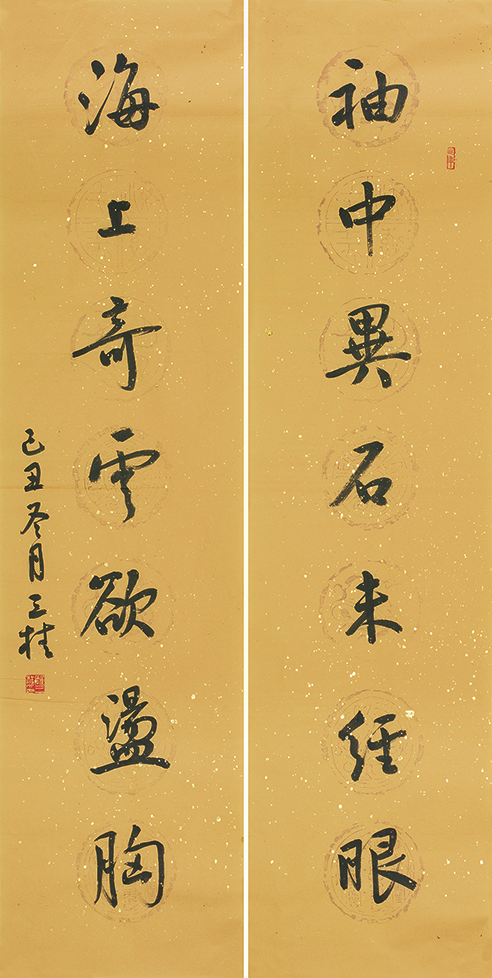 袖中異石未經眼
海上奇雲欲盪胸
己丑冬月三桂